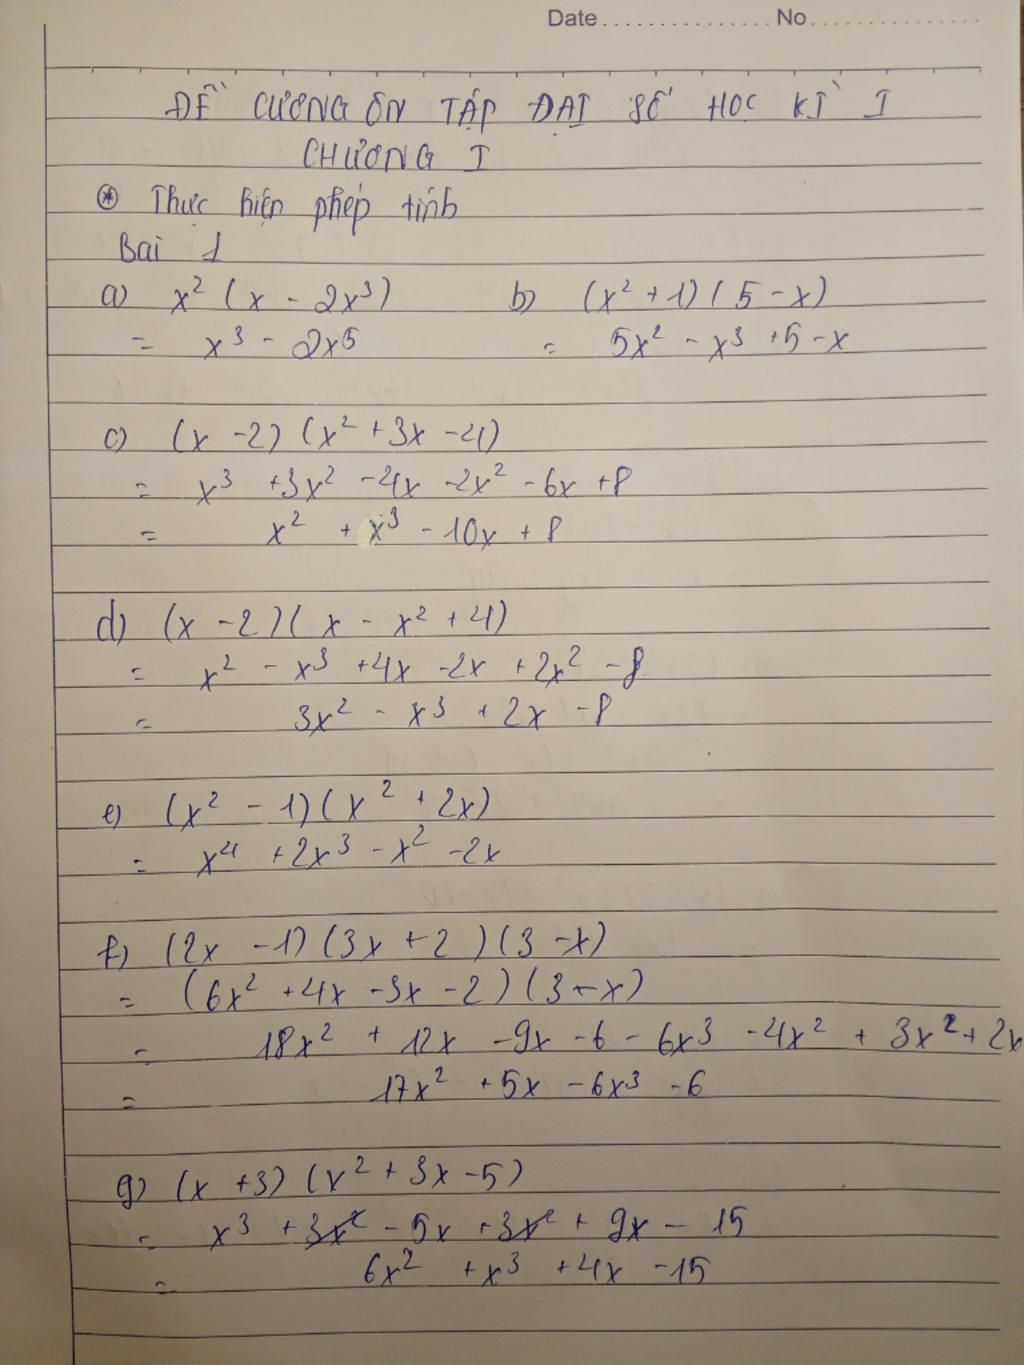 Date................No................
ĐỀ CƯƠNG ÔN TẬP ĐẠI SỐ HỌC KÌ I
CHƯƠNG I
⊛ Thực hiện phép tính
Bài 1
a) x² (x - 2x³) b) (x² + 1) (5 - x)
= x³ - 2x⁵ = 5x² - x³ + 5 - x
c) (x - 2) (x² + 3x - 4)
= x³ + 3x² - 4x - 2x² - 6x + 8
= x² + x³ - 10x + 8
d) (x - 2) (x - x² + 4)
= x² - x³ + 4x - 2x + 2x² - 8
= 3x² - x³ + 2x - 8
e) (x² - 1) (x² + 2x)
= x⁴ + 2x³ - x² - 2x
f) (2x - 1) (3x + 2) (3 - x)
= (6x² + 4x - 3x - 2) (3 - x)
= 18x² + 12x - 9x - 6 - 6x³ - 4x² + 3x² + 2x
= 17x² + 5x - 6x³ - 6
g) (x + 3) (x² + 3x - 5)
= x³ + 3x² - 5x + 3x² + 9x - 15
= 6x² + x³ + 4x - 15